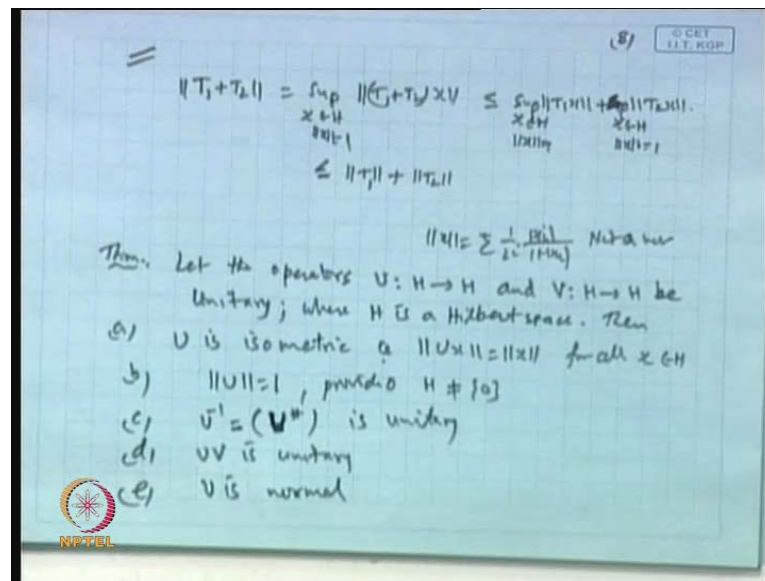 (8)
© CET
I.I.T. KGP
||T₁+T₂|| = Sup ||(T₁+T₂)x|| ≤ Sup||T₁x|| + Sup||T₂x||.
x∈H x∈H x∈H
||x||=1 ||x||=1 ||x||=1
≤ ||T₁|| + ||T₂||
||x|| = Σ 1/2ⁱ |xᵢ|/(1+|xᵢ|) Not a
Thm. Let the operators U: H→H and V: H→H be
Unitary; where H is a Hilbert space. Then
(a) U is isometric ||Ux||=||x|| for all x∈H
b) ||U||=1, provided H ≠ {0}
(c) U⁻¹=(U*) is unitary
(d) UV is unitary
(e) U is normal
NPTEL